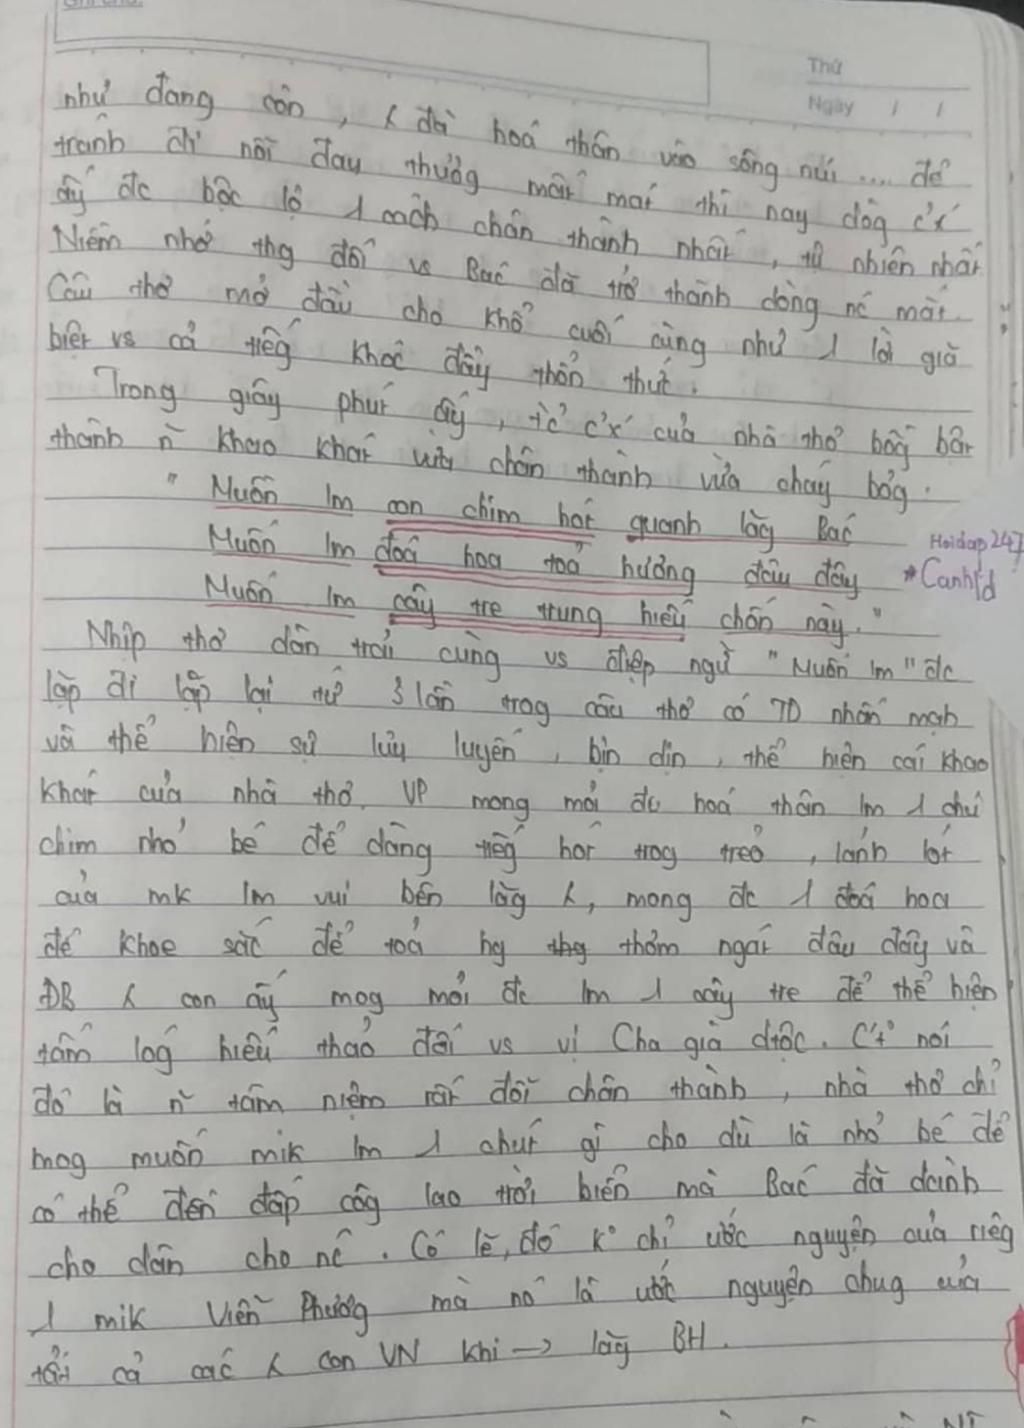 Thứ
Ngày / /
như đang còn, đã hoá thân vào sông núi .... để
tránh đi nỗi đau thươg mất mát thì nay dòg c'x'
ấy đc bộc lộ 1 cách chân thành nhất, tự nhiên nhất
Niềm nhớ thg đối vs Bác đã trở thành dòng nc mắt.
Câu thơ mở đầu cho khổ cuối cùng như 1 lời giã
biệt vs cả tiếg khóc đầy thổn thức.
Trong giây phút ấy, c'x' của nhà thơ bỗg bật
thành n~ khao khát vừa chân thành vừa cháy bỏg.
" Muốn lm con chim hót quanh lăg Bác
Muốn lm đoá hoa toả hương đâu đây
Muốn lm cây tre trung hiếu chốn này."
Hoidap247
*Canhfd
Nhịp thơ dần trải cùng vs điệp ngữ "Muốn lm" đc
lặp đi lặp lại tư 3 lần trog câu thơ có TD nhấn mạh
và thể hiện sự lưu luyến, bịn dịn, thể hiện cái khao
khát của nhà thơ. VP mong mỏi đc hoá thân lm 1 chú
chim nhỏ bé để dâng tiếg hót trog trẻo, lảnh lót
của mk lm vui bên lăg, mong đc 1 đoá hoa
để khoe sắc để toả hg thơm ngát đâu đây và
ĐB con ấy mog mỏi đc lm 1 cây tre để thể hiện
tấm lòg hiếu thảo đối vs vị Cha già dtộc. C't' nói
đó là n~ tâm niệm rất đỗi chân thành, nhà thơ chỉ
mog muốn mik lm 1 chút gì cho dù là nhỏ bé để
có thể đền đáp côg lao trời biển mà Bác đã dành
cho dân cho nc. Có lẽ, đó k° chỉ ước nguyện của riêg
1 mik Viễn Phươg mà nó là ước nguyện chug của
tất cả các con VN khi -> lăg BH.